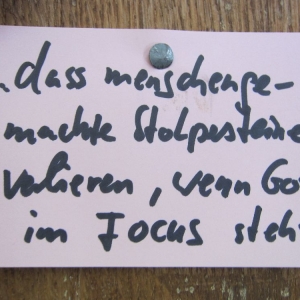 ..dass menschenge-
machte Stolpersteine
verlieren, wenn Go
im FOCUS steh